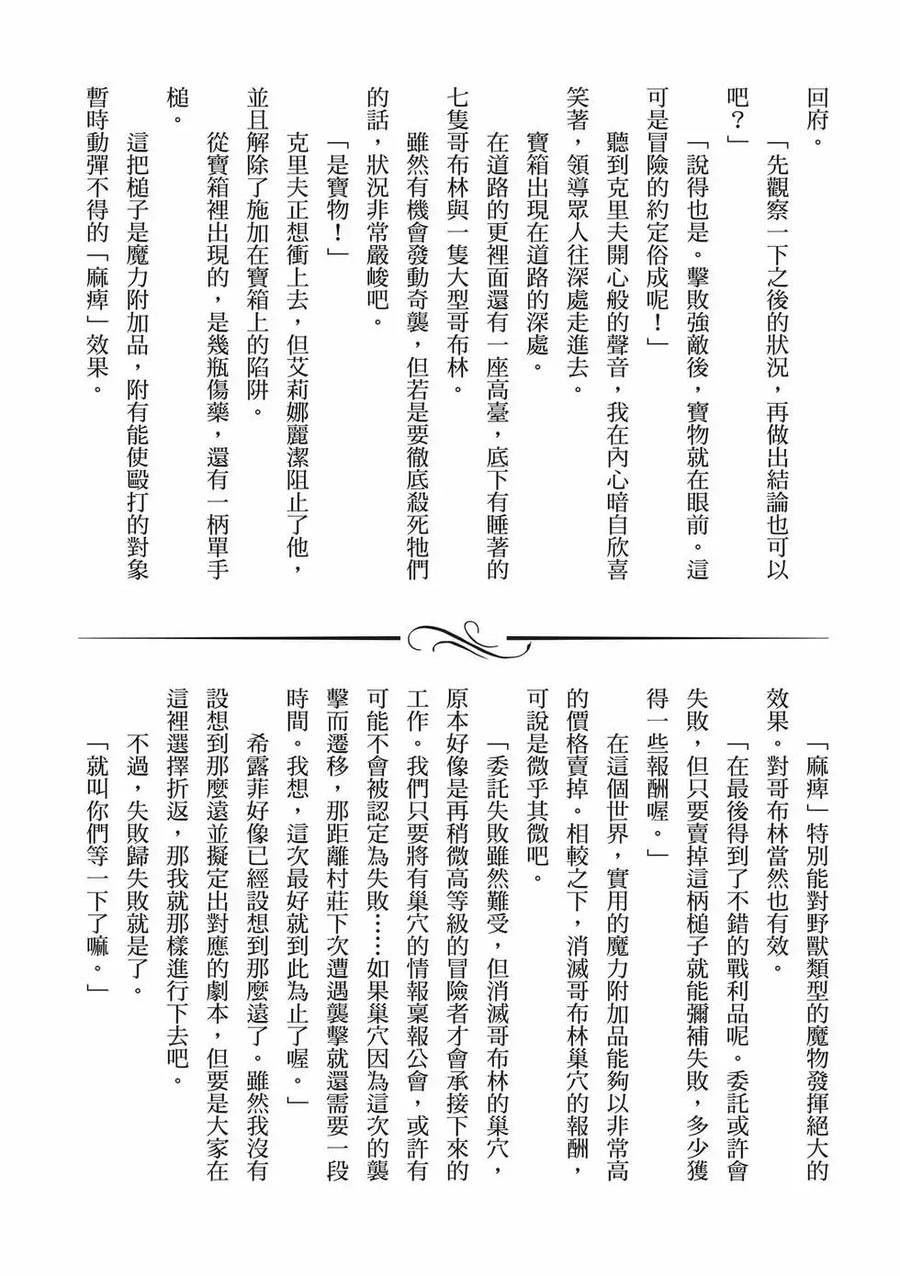 回府。
「先觀察一下之後的狀況，再做出結論也可以
吧？」
「說得也是。擊敗強敵後，寶物就在眼前。這
可是冒險的約定俗成呢！」
聽到克里夫開心般的聲音，我在內心暗自欣喜
笑著，領導眾人往深處走進去。
寶箱出現在道路的深處。
在道路的更裡面還有一座高臺，底下有睡著的
七隻哥布林與一隻大型哥布林。
雖然有機會發動奇襲，但若是要徹底殺死牠們
的話，狀況非常嚴峻吧。
「是寶物！」
克里夫正想衝上去，但艾莉娜麗潔阻止了他，
並且解除了施加在寶箱上的陷阱。
從寶箱裡出現的，是幾瓶傷藥，還有一柄單手
槌。
這把槌子是魔力附加品，附有能使毆打的對象
暫時動彈不得的「麻痺」效果。
「麻痺」特別能對野獸類型的魔物發揮絕大的
效果。對哥布林當然也有效。
「在最後得到了不錯的戰利品呢。委託或許會
失敗，但只要賣掉這柄槌子就能彌補失敗，多少獲
得一些報酬喔。」
在這個世界，實用的魔力附加品能夠以非常高
的價格賣掉。相較之下，消滅哥布林巢穴的報酬，
可說是微乎其微吧。
「委託失敗雖然難受，但消滅哥布林的巢穴，
原本好像是再稍微高等級的冒險者才會承接下來的
工作。我們只要將有巢穴的情報稟報公會，或許有
可能不會被認定為失敗……如果巢穴因為這次的襲
擊而遷移，那距離村莊下次遭遇襲擊就還需要一段
時間。我想，這次最好就到此為止了喔。」
希露菲好像已經設想到那麼遠了。雖然我沒有
設想到那麼遠並擬定出對應的劇本，但要是大家在
這裡選擇折返，那我就那樣進行下去吧。
不過，失敗歸失敗就是了。
「就叫你們等一下了嘛。」